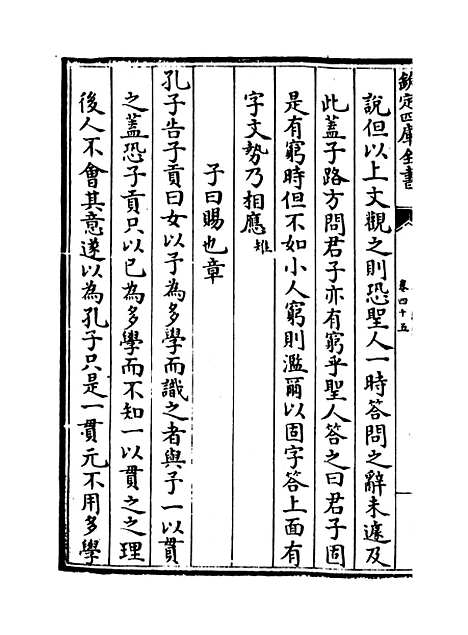 欽定四庫全書
卷四十五
說但以上文觀之則恐聖人一時答問之辭未遽及
此蓋子路方問君子亦有窮乎聖人答之曰君子固
是有窮時但不如小人窮則濫爾以固字答上面有
字文勢乃相應雉
子曰賜也章
孔子告子貢曰女以予為多學而識之者與予一以貫
之蓋恐子貢只以已為多學而不知一以貫之之理
後人不會其意遂以為孔子只是一貫元不用多學